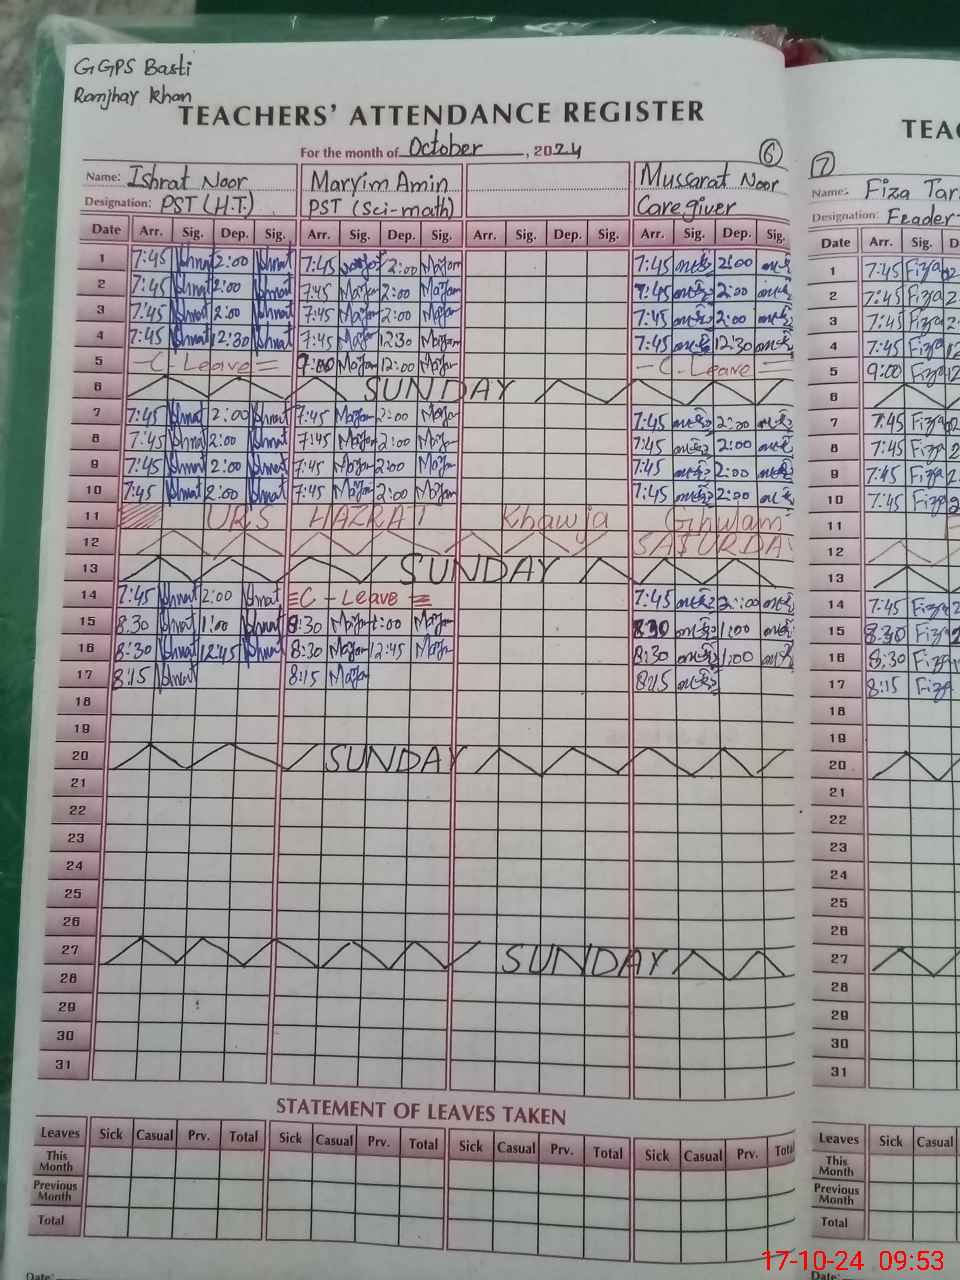 GGPS Basti
Ramjhay Khan
TEACHERS' ATTENDANCE REGISTER
For the month of October, 2024
6
Name: Ishrat Noor Maryim Amin Mussarat Noor
Designation: PST (H.T.) PST (Sci-math) Caregiver
Date Arr. Sig. Dep. Sig. Arr. Sig. Dep. Sig. Arr. Sig. Dep. Sig. Arr. Sig. Dep. Sig.
1 7:45 Ishrat 2:00 Ishrat 7:45 2:00 7:45 2:00
2 7:45 Ishrat 2:00 Ishrat 7:45 2:00 7:45 2:00
3 7:45 Ishrat 2:00 Ishrat 7:45 2:00 7:45 2:00
4 7:45 Ishrat 12:30 Ishrat 7:45 12:30 7:45 12:30
5 C-Leave 9:00 12:00 C-Leave
6 SUNDAY
7 7:45 Ishrat 2:00 Ishrat 7:45 2:00 7:45 2:00
8 7:45 Ishrat 2:00 Ishrat 7:45 2:00 7:45 2:00
9 7:45 Ishrat 2:00 Ishrat 7:45 2:00 7:45 2:00
10 7:45 Ishrat 2:00 Ishrat 7:45 2:00 7:45 2:00
11 URS HAZRAT Khawja Ghulam
12 SATURDA
13 SUNDAY
14 7:45 Ishrat 2:00 Ishrat C-Leave 7:45 2:00
15 8:30 Ishrat 1:00 Ishrat 8:30 1:00 8:30 1:00
16 8:30 Ishrat 12:45 Ishrat 8:30 12:45 8:30 1:00
17 8:15 Ishrat 8:15 8:15
18
19
20 SUNDAY
21
22
23
24
25
26
27 SUNDAY
28
29
30
31
STATEMENT OF LEAVES TAKEN
Leaves Sick Casual Prv. Total Sick Casual Prv. Total Sick Casual Prv. Total Sick Casual Prv. Total
This Month
Previous Month
Total
Date:
TEAC
7
Name: Fiza Tar
Designation:
Date Arr. Sig. D
1 7:45 Fiza 2
2 7:45 Fiza 2
3 7:45 Fiza 2
4 7:45 Fiza 12
5 9:00 Fiza 12
6
7 7:45 Fiza 2
8 7:45 Fiza 2
9 7:45 Fiza 2
10 7:45 Fiza 2
11
12
13
14 7:45 Fiza 2
15 8:30 Fiza
16 8:30 Fiza
17 8:15 Fiza
18
19
20
21
22
23
24
25
26
27
28
29
30
31
Leaves Sick Casual
This Month
Previous Month
Total
Date:
17-10-24 09:53